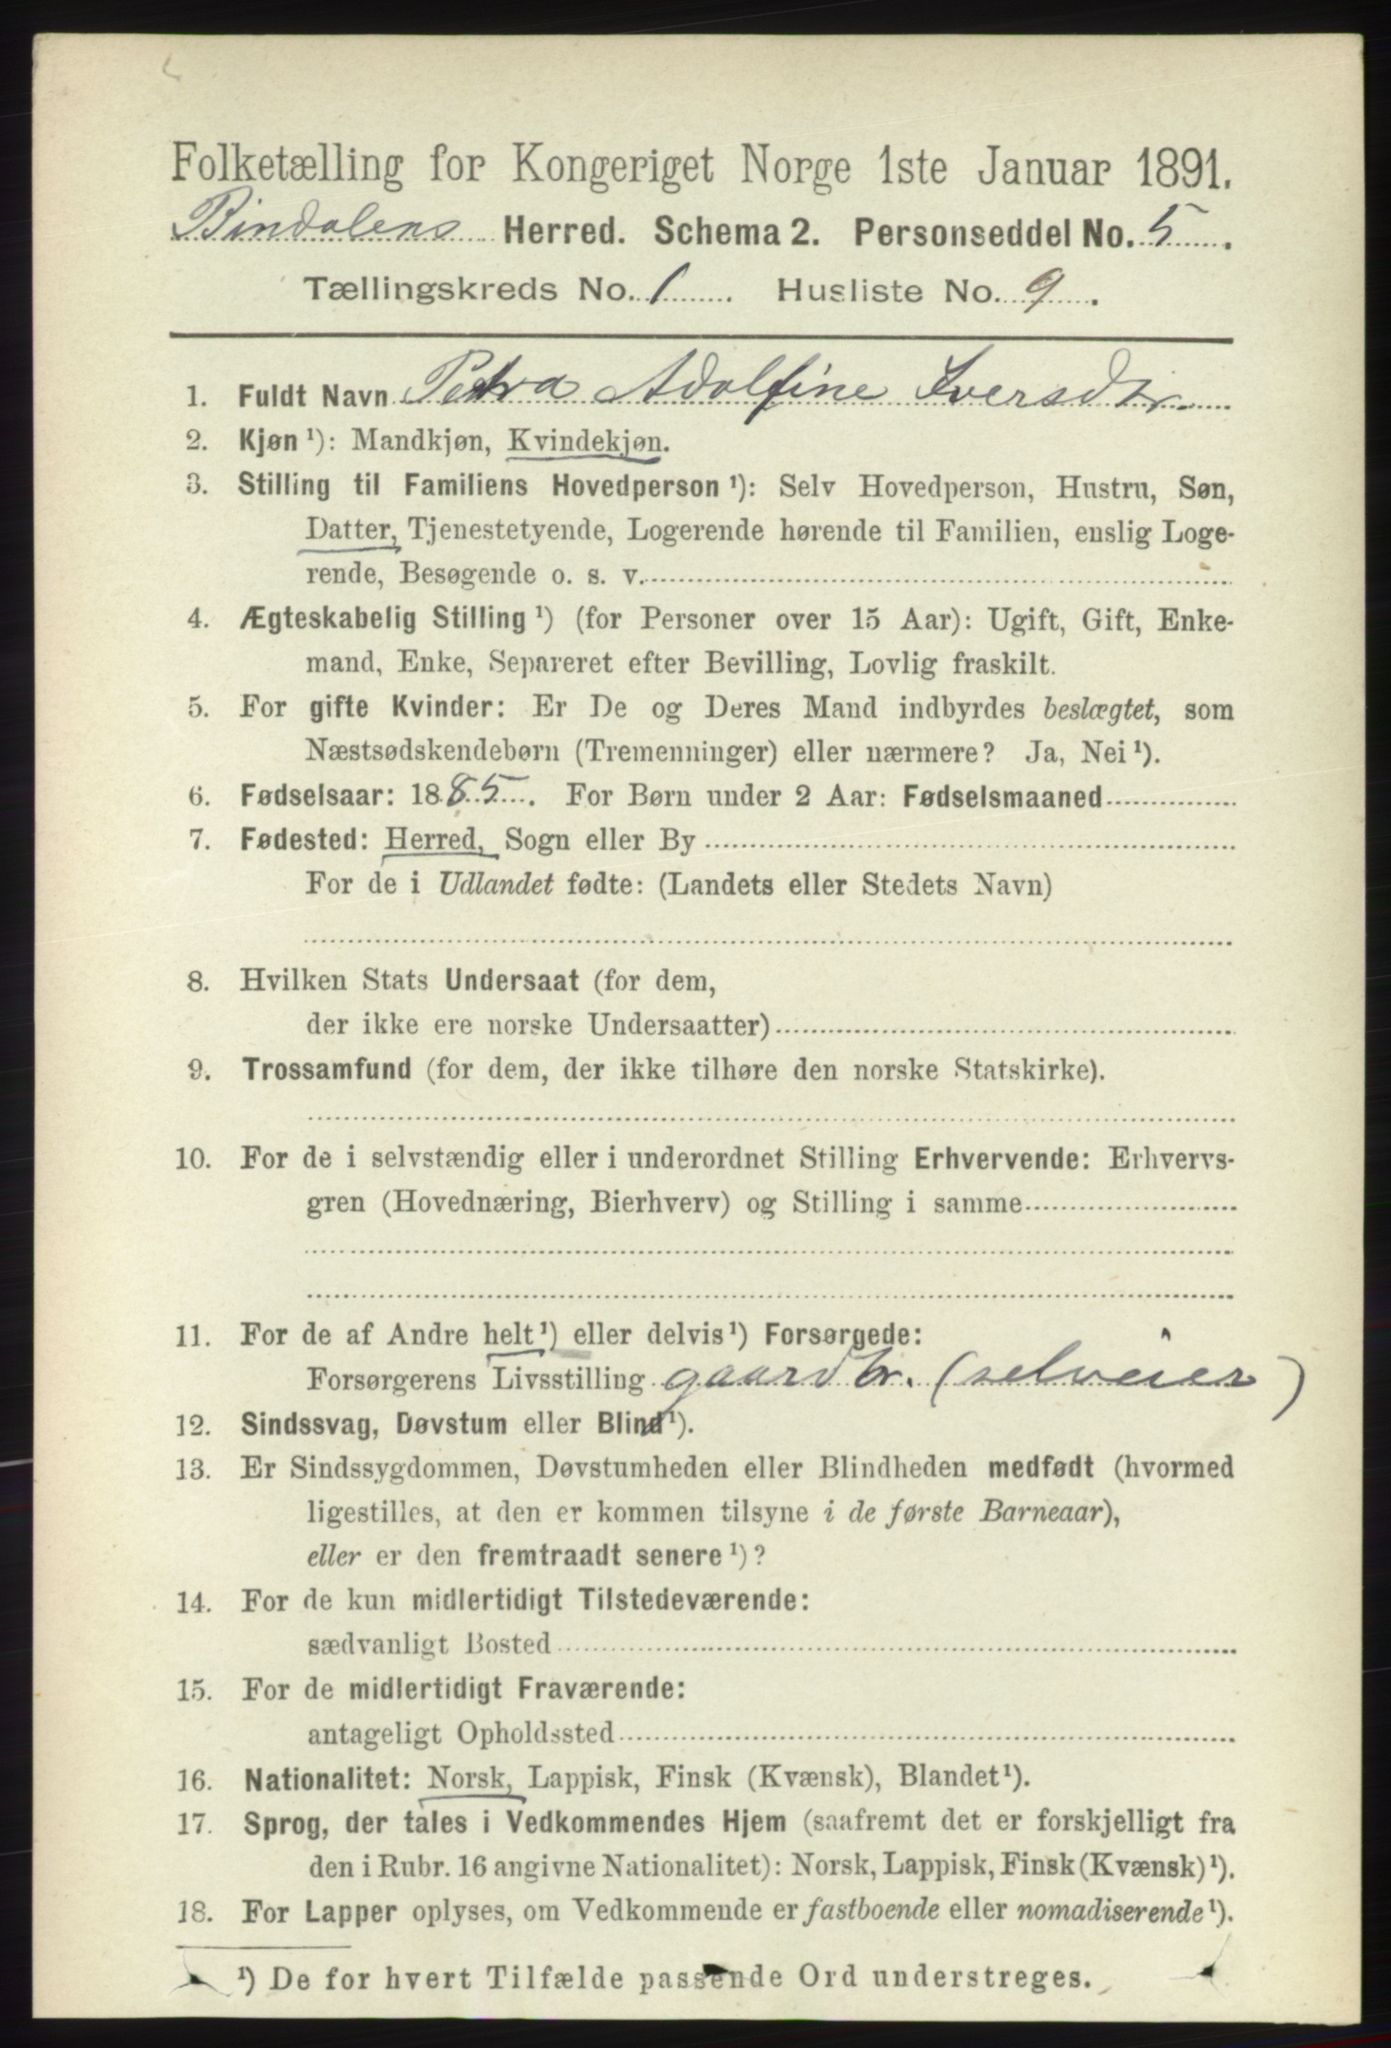 Folketælling for Kongeriget Norge 1ste Januar 1891.
Bindalens Herred. Schema 2. Personseddel No. 5.
Tællingskreds No. 1. Husliste No. 9.
1. Fuldt Navn Petra Adolfine Iversdtr.
2. Kjøn ¹): Mandkjøn, Kvindekjøn.
3. Stilling til Familiens Hovedperson ¹): Selv Hovedperson, Hustru, Søn,
Datter, Tjenestetyende, Logerende hørende til Familien, enslig Loge-
rende, Besøgende o. s. v.
4. Ægteskabelig Stilling ¹) (for Personer over 15 Aar): Ugift, Gift, Enke-
mand, Enke, Separeret efter Bevilling, Lovlig fraskilt.
5. For gifte Kvinder: Er De og Deres Mand indbyrdes beslægtet, som
Næstsødskendebørn (Tremenninger) eller nærmere? Ja, Nei ¹).
6. Fødselsaar: 1885. For Børn under 2 Aar: Fødselsmaaned
7. Fødested: Herred, Sogn eller By
For de i Udlandet fødte: (Landets eller Stedets Navn)
8. Hvilken Stats Undersaat (for dem,
der ikke ere norske Undersaatter)
9. Trossamfund (for dem, der ikke tilhøre den norske Statskirke).
10. For de i selvstændig eller i underordnet Stilling Erhvervende: Erhvervs-
gren (Hovednæring, Bierhverv) og Stilling i samme
11. For de af Andre helt ¹) eller delvis ¹) Forsørgede:
Forsørgerens Livsstilling gaardbr. (selveier)
12. Sindssvag, Døvstum eller Blind ¹).
13. Er Sindssygdommen, Døvstumheden eller Blindheden medfødt (hvormed
ligestilles, at den er kommen tilsyne i de første Barneaar),
eller er den fremtraadt senere ¹)?
14. For de kun midlertidigt Tilstedeværende:
sædvanligt Bosted
15. For de midlertidigt Fraværende:
antageligt Opholdssted
16. Nationalitet: Norsk, Lappisk, Finsk (Kvænsk), Blandet ¹).
17. Sprog, der tales i Vedkommendes Hjem (saafremt det er forskjelligt fra
den i Rubr. 16 angivne Nationalitet): Norsk, Lappisk, Finsk (Kvænsk) ¹).
18. For Lapper oplyses, om Vedkommende er fastboende eller nomadiserende ¹).
¹) De for hvert Tilfælde passende Ord understreges.